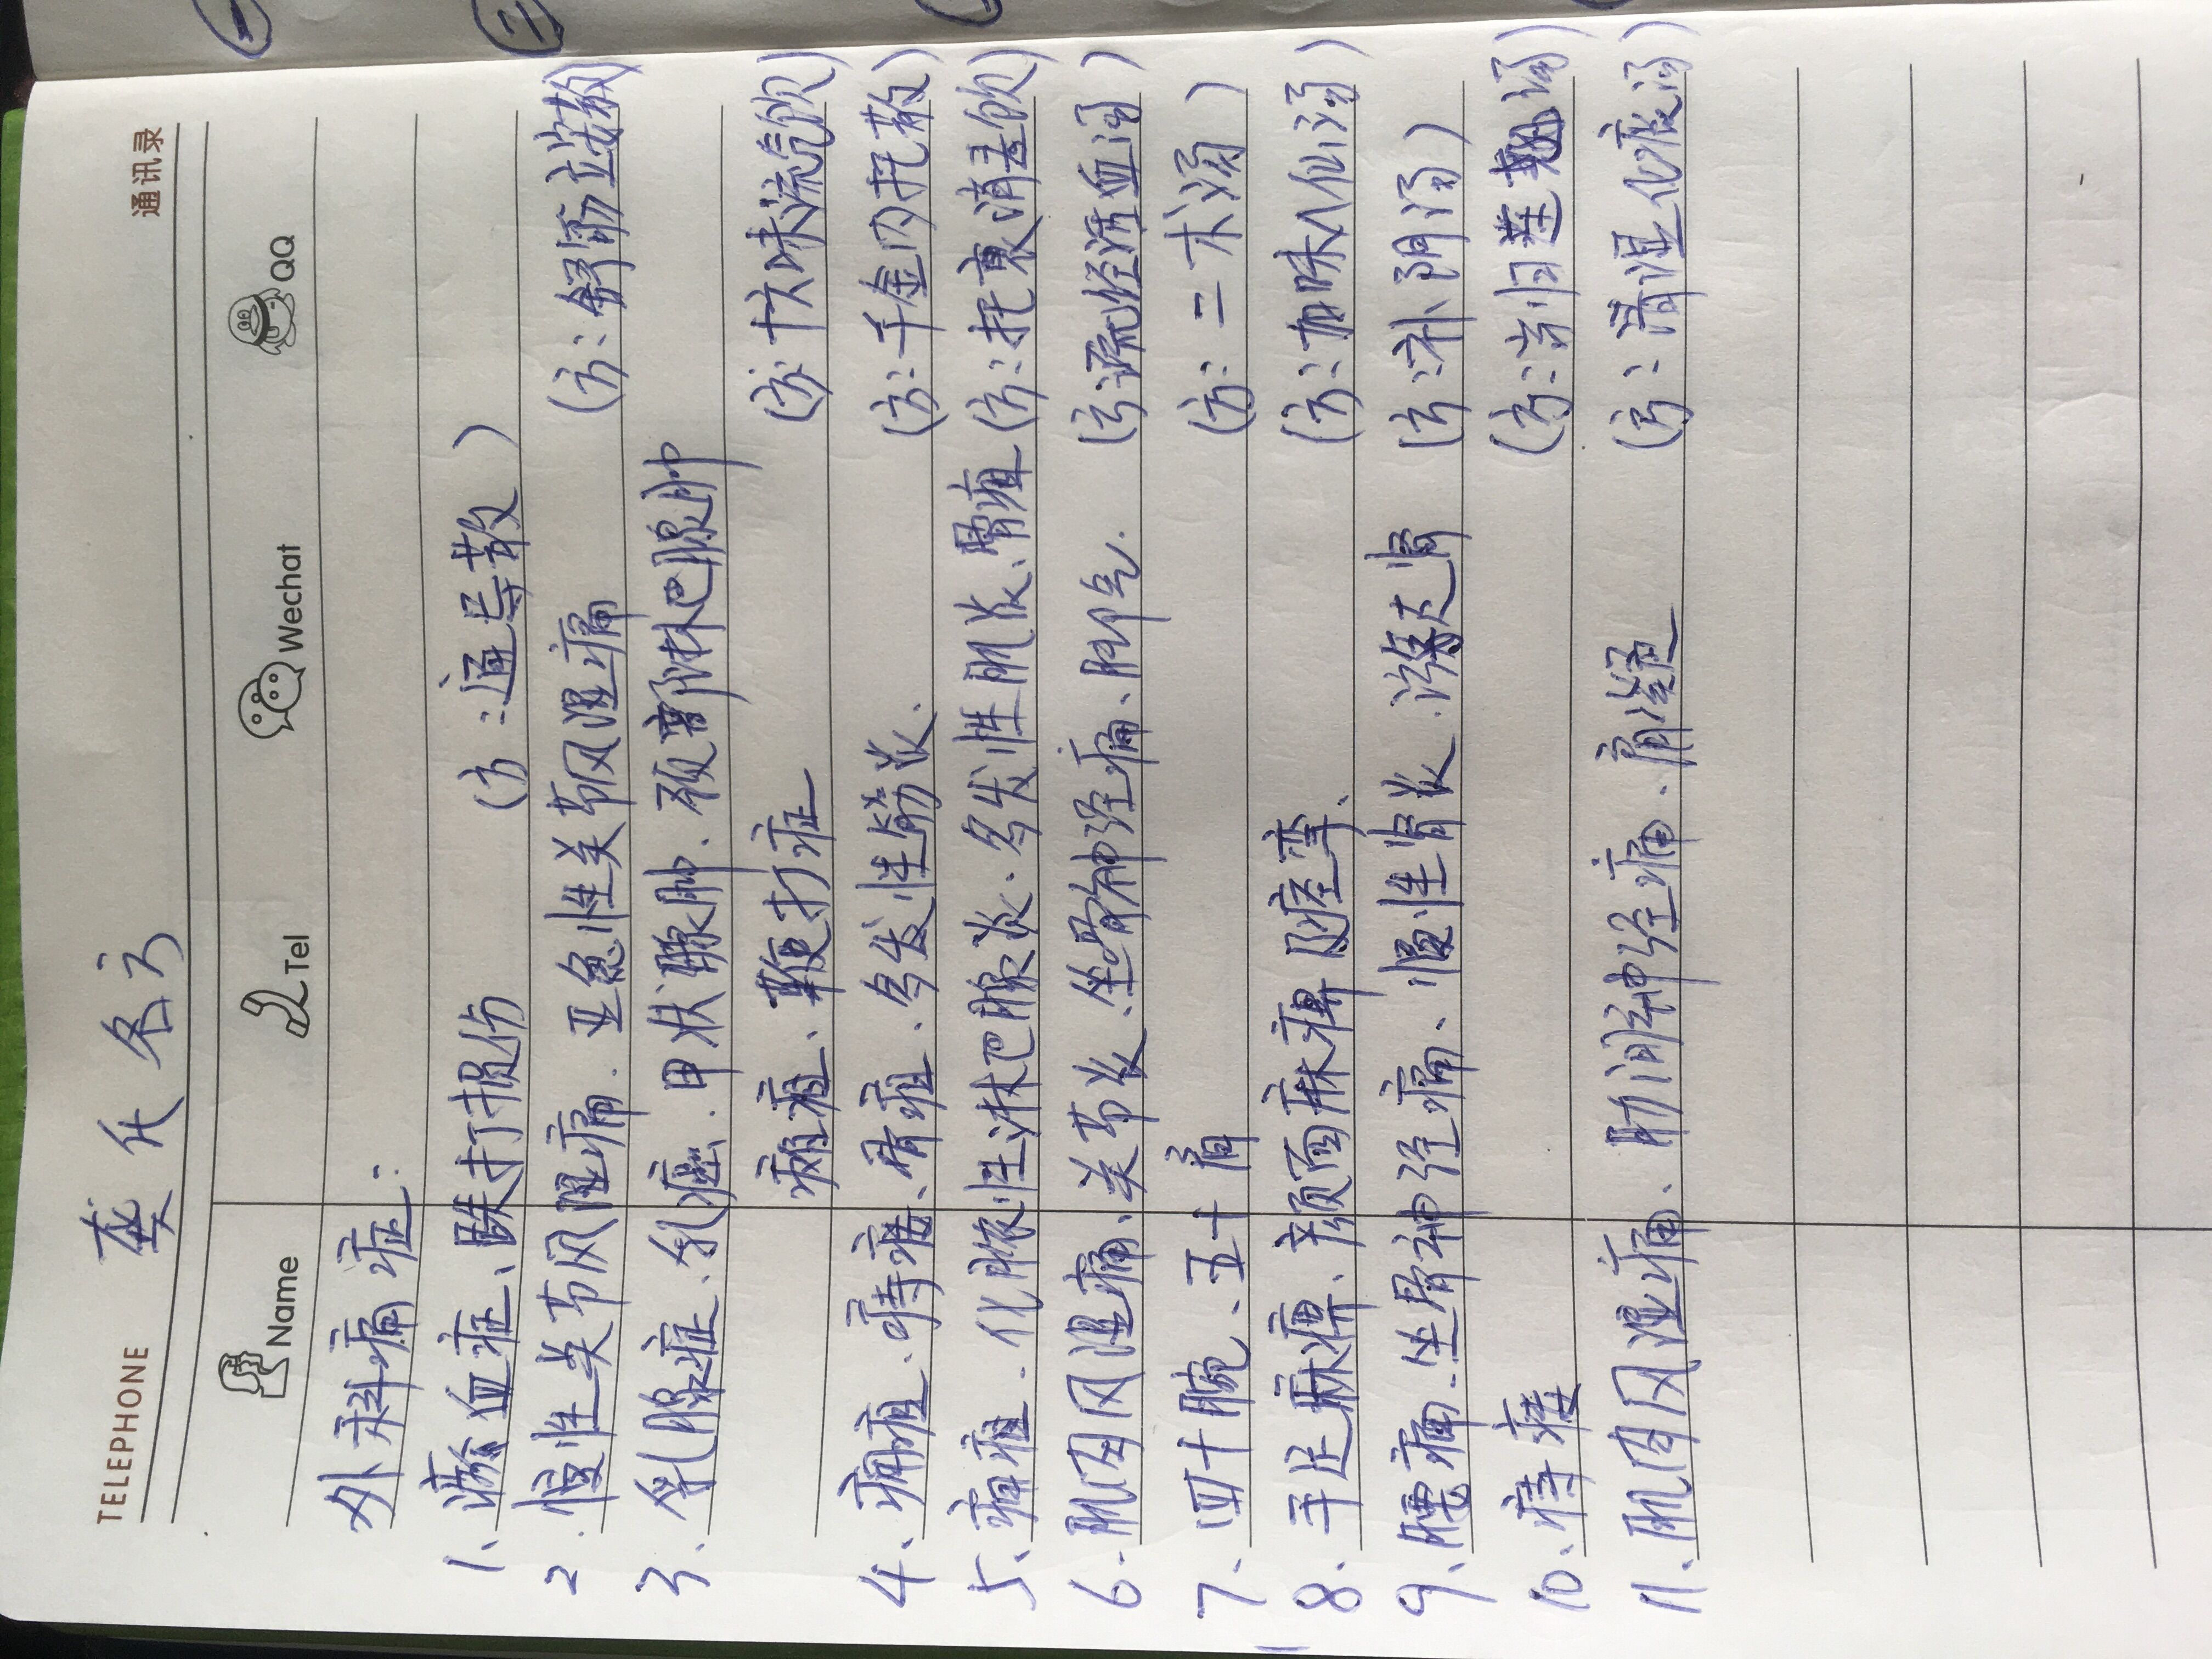 龚氏名方
TELEPHONE 通讯录
Name Tel Wechat QQ
外科痛症:
1、瘀血症、跌打损伤 (方:通导散)
2.慢性关节风湿痛.亚急性关节风湿痛 (方:舒筋立安散)
3、乳腺症.乳癌.甲状腺肿.颈部淋巴腺肿
瘢症、鞭打症 (方:十六味流气饮)
4、痈疽.痔瘘、骨疽.多发性筋炎. (方:千金内托散)
5、痈疽.化脓性淋巴腺炎.多发性肌炎、骨疽 (方:托里消毒饮)
6.肌肉风湿痛、关节炎.坐骨神经痛、脚气. (方:疏经活血汤)
7、四十腕、五十肩 (方:二术汤)
8.手足麻痹、颜面麻痹及痉挛. (方:加味八仙汤)
9、腰痛.坐骨神经痛、慢性肾炎.游走肾 (方:补阴汤)
10、痔瘘 (方:当归连翘汤)
11、肌肉风湿痛、肋间神经痛.肩凝 (方:清湿化痰汤)